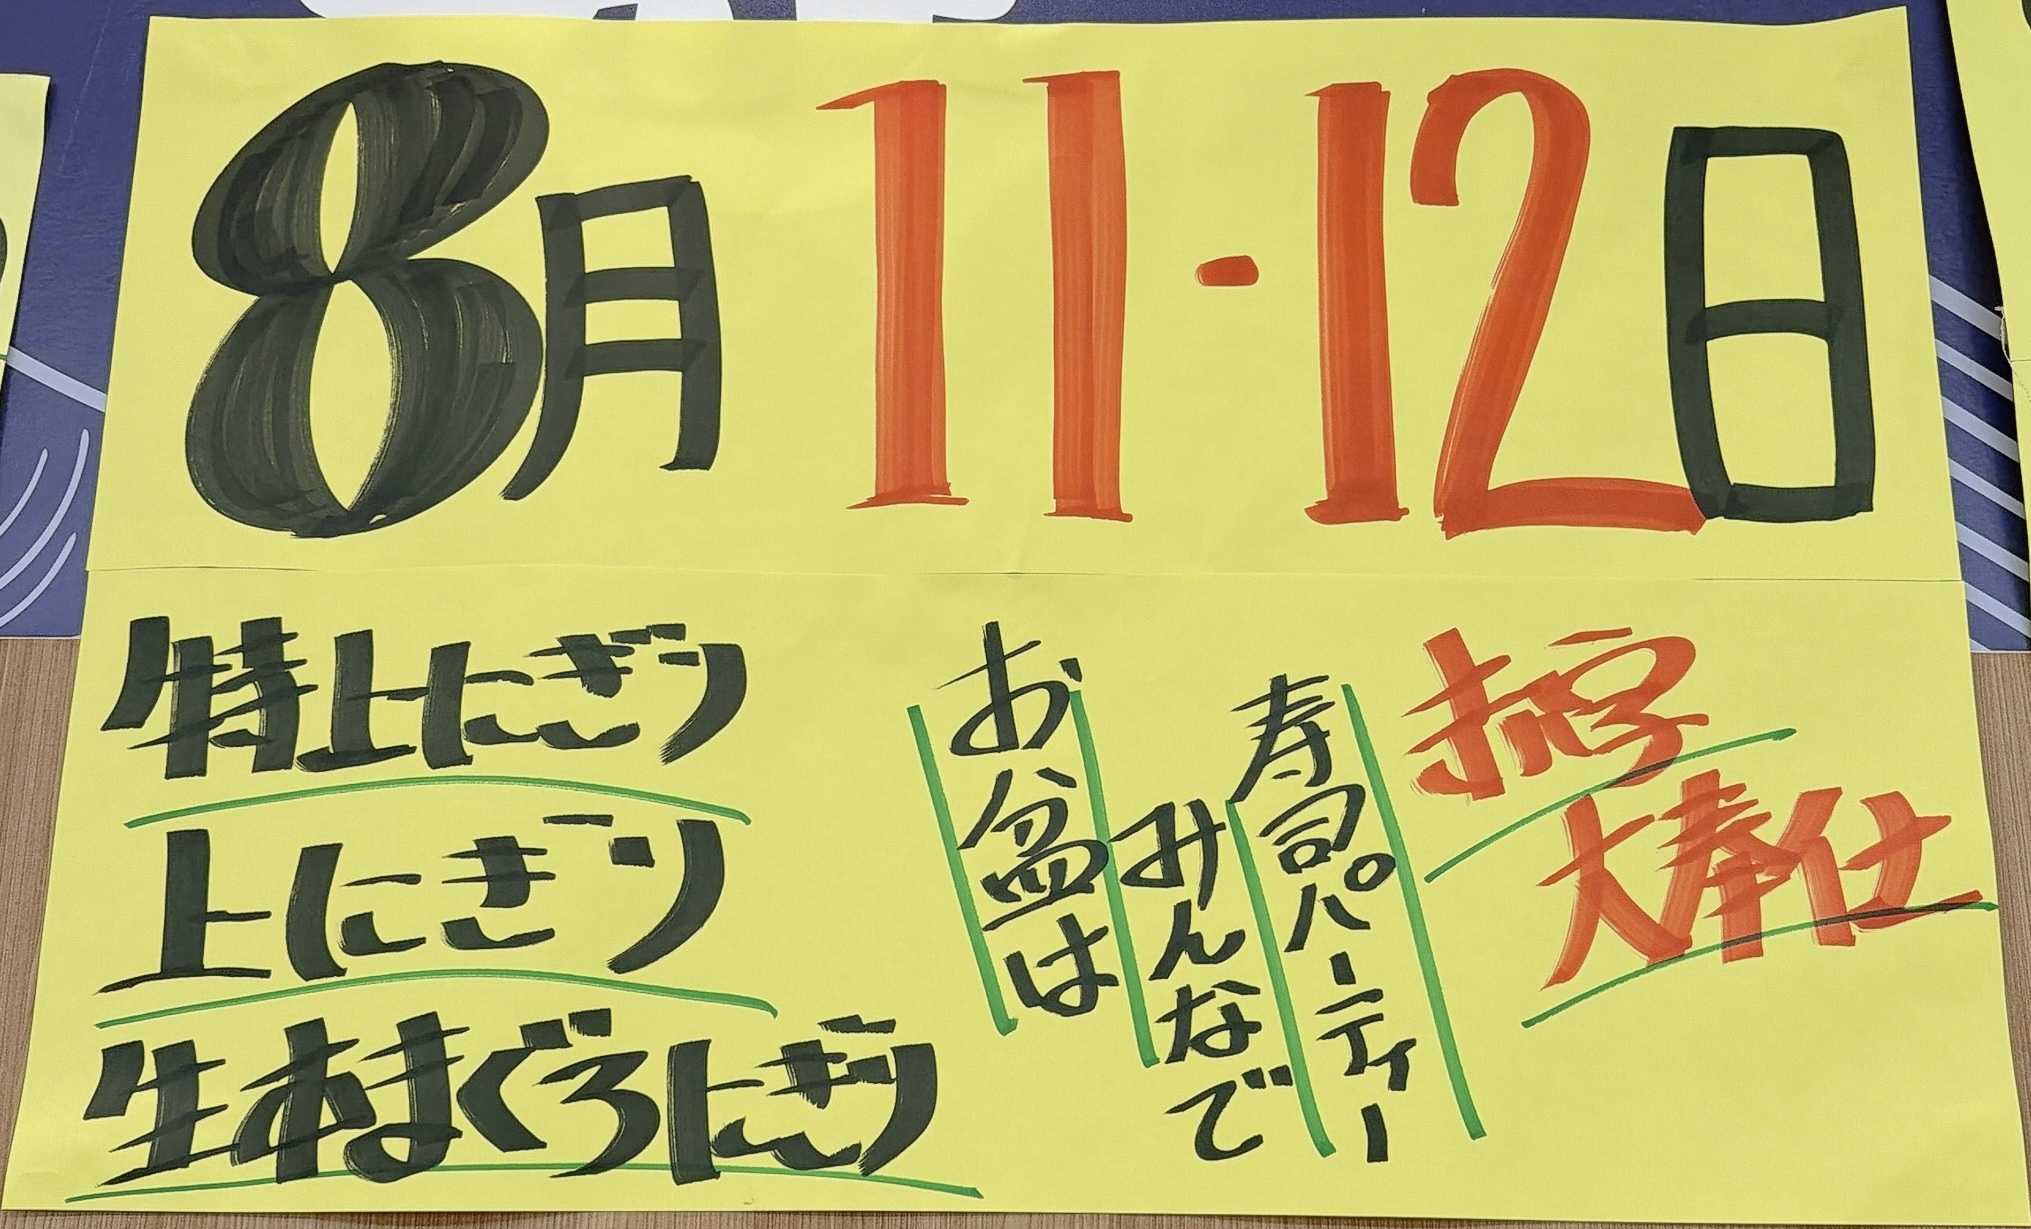 8月 11-12日
特上にぎり
上にぎり
生本まぐろにぎり
赤字
大奉仕
寿司パーティー
みんなで
お盆は